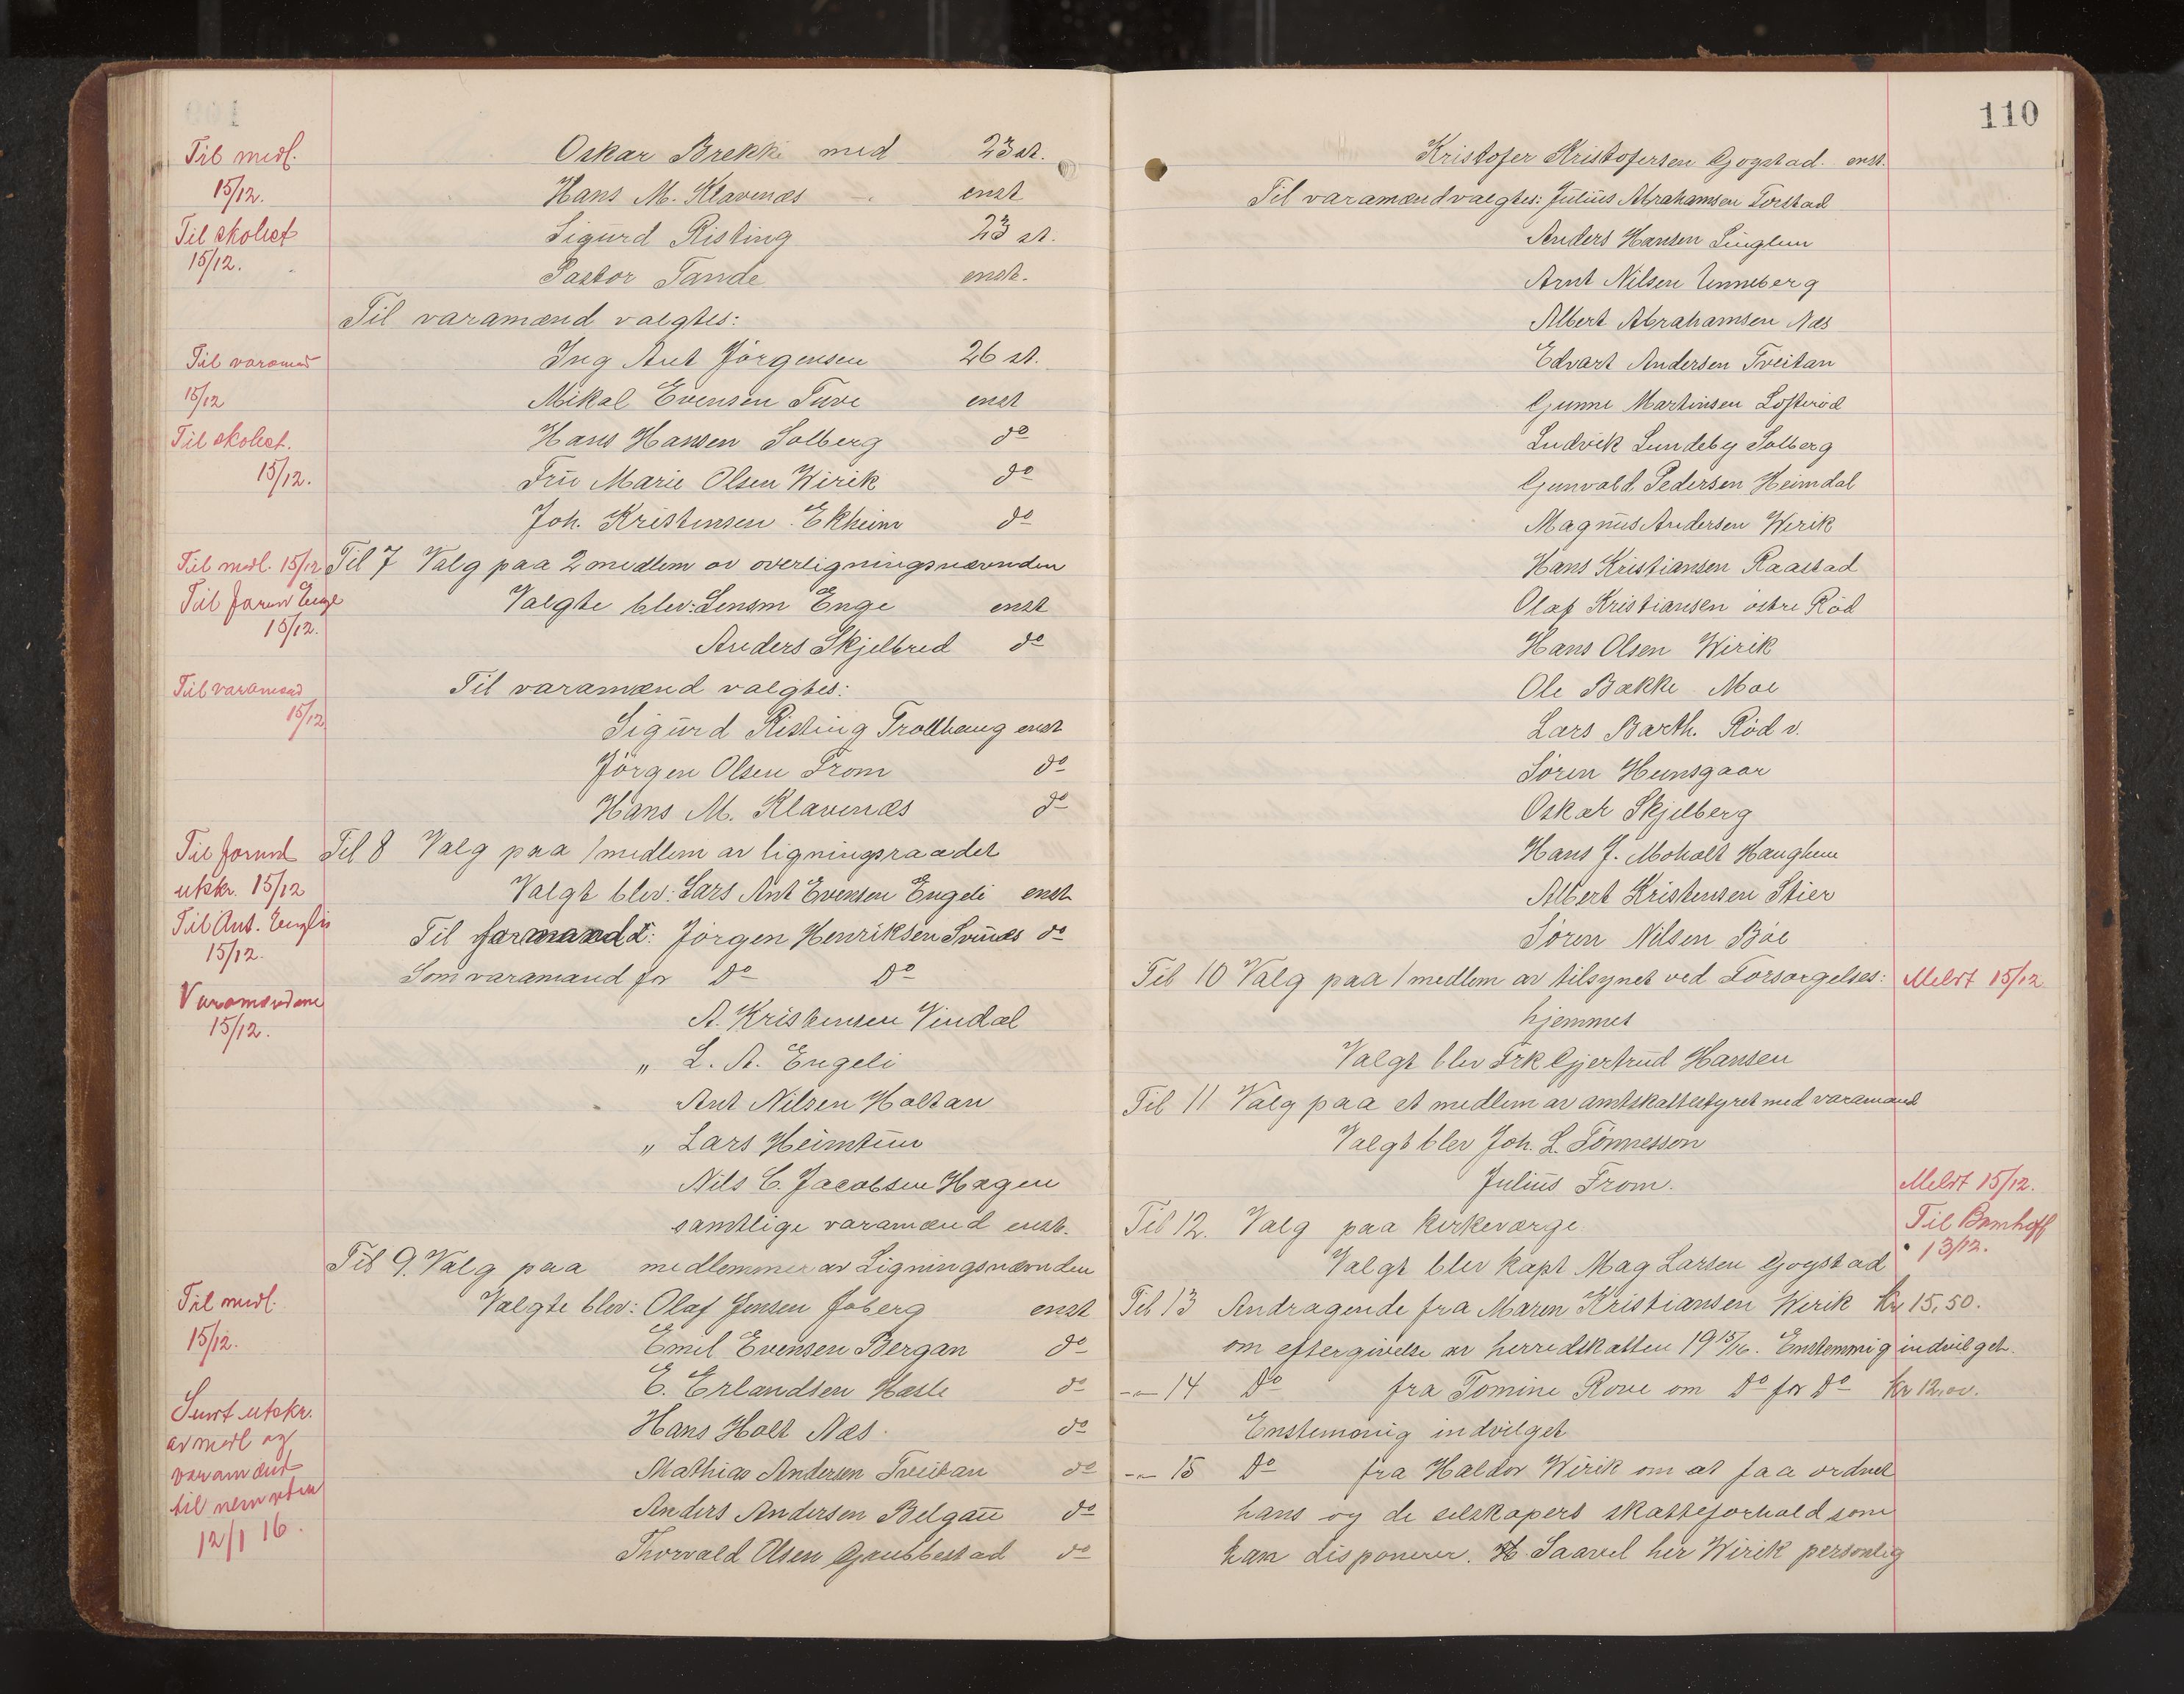 Til medl.
15/12.
Til skolest
15/12.
Oskar Brekke med 23 st.
Hans M. Klavenæs enst
Sigurd Risting 23 st.
Pastor Tande enst.
Til varamænd valgtes:
Til varamænd
15/12
Ing Ant Jörgensen 26 st.
Mikal Evensen Tuve enst
Til skolest.
15/12.
Hans Hansen Solberg do
Frū Marie Olsen Wirik do
Joh. Kristensen Ekheim do
Til medl. 15/12
Til 7 Valg paa 2 medlem av overligningsnævnden
Til form Enge
15/12.
Valgte blev: Lensm Enge enst
Anders Skjelbred do
Til varamænd
15/12
Til varamænd valgtes:
Sigūrd Risting Trollhaug enst
Jörgen Olsen From do
Hans M. Klavenæs do
Til formd
utskr. 15/12
Til 8 Valg paa 1 medlem av ligningsraadet
Valgt blev: Lars Ant Evensen Engeli enst
Til Ant. Engeli
15/12.
Til formand: Jörgen Henriksen Svinæs do
Som varamand for do do
Varamændene
15/12.
A. Kristensen Vindal
„ L. A. Engeli
Ant Nilsen Holtan
„ Lars Heimtūn
Nils C. Jacobsen Hagen
samtlige varamænd enst.
Til 9. Valg paa medlemmer av Ligningsnævnden
Til medl.
15/12.
Valgte blev: Olaf Jensen Joberg enst
Emil Evensen Bergan do
E. Erlandsen Hasle do
Sendt utskr.
av medl og
varamænd
til nævnden
12/1 16.
Hans Holt Næs do
Mathias Andersen Tveitan do
Anders Andersen Belgaū do
Thorvald Olsen Grubbestad do
110
Kristofer Kristofersen Gogstad. enst.
Til varamænd valgtes: Jūliūs Abrahamsen Torstad
Anders Hansen Linglem
Arnt Nilsen Unneberg
Albert Abrahamsen Næs
Edvart Andersen Tveitan
Gunne Martinsen Lofteröd
Ludvik Lundeby Solberg
Gunvald Pedersen Heimdal
Magnūs Andersen Wirik
Hans Kristiansen Raastad
Olaf Kristiansen östre Röd
Hans Olsen Wirik
Ole Bakke Moe
Lars Barth. Röd v.
Sören Hunsgaar
Oskar Skjelberg
Hans J. Moholt Haughem
Albert Kristensen Stier
Sören Nilsen Böe
Til 10 Valg paa 1 medlem av tilsynet ved Forsörgelses: Meldt 15/12.
hjemmet
Valgt blev Frk Gjertrud Hansen
Til 11 Valg paa et medlem av amtskattestyret med varamand
Valgt blev Joh. L. Tönnesson
Juliūs From. Meldt 15/12.
Til 12. Valg paa kirkeværge.
Valgt blev kapt Mag Larsen Gogstad
13/12.
Til 13 Andragende fra Maren Kristiansen Wirik Kr 15,50.
om eftergivelse av herredskatten 1915/16. Enstemmig indvilget.
-"- 14 do fra Tomine Rove om do for do kr 12,00.
Enstemmig indvilget
-"- 15 do fra Haldor Wirik om at faa ordnet
hans og de selskapers skatteforhold som
han disponerer. Saavel her Wirik personlig